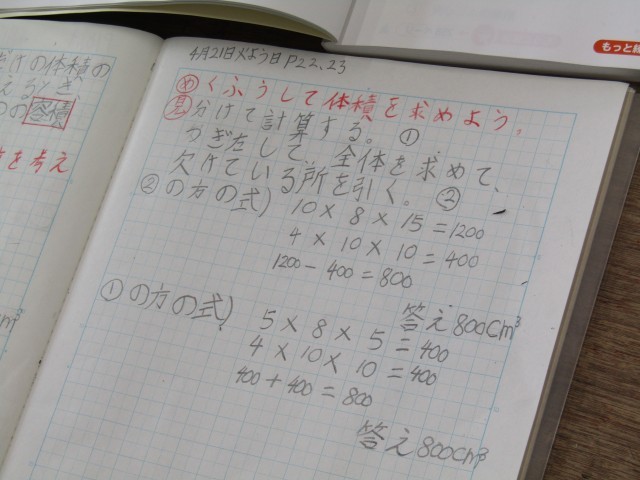 もっと
だけの体積の
容積
を考え
cm³
4月21日火よう日 P22、23
めくふうして体積を求めよう。
分けて計算する。 ①
つぎ左して、全体を求めて、
欠けている所を引く。 ②
②の方の式) 10×8×15=1200
4×10×10=400
1200-400=800
答え 800cm³
①の方の式) 5×8×5=400
4×10×10=400
400+400=800
答え 800cm³